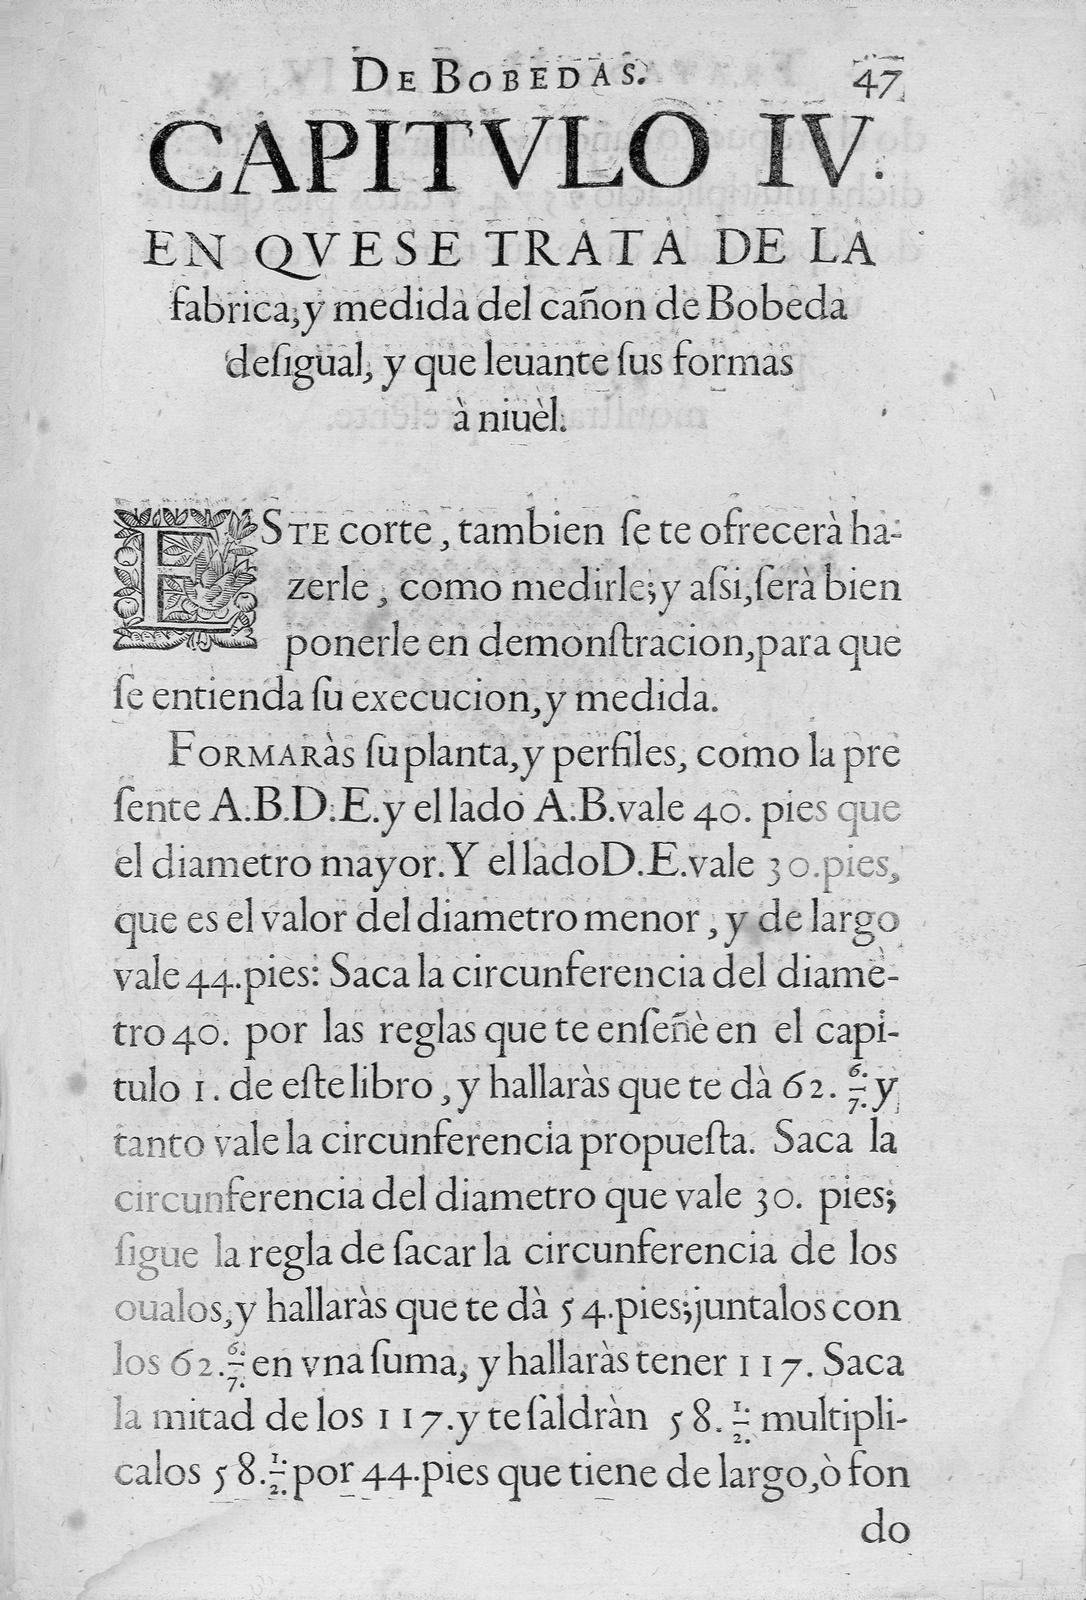 DE BOBEDAS. 47
CAPITVLO IV.
EN QVE SE TRATA DE LA
fabrica, y medida del cañon de Bobeda
deſigual, y que leuante ſus formas
à niuèl.
ESTE corte, tambien ſe te ofrecerà ha-
zerle, como medirle; y aſsi, ſerà bien
ponerle en demonſtracion, para que
ſe entienda ſu execucion, y medida.
FORMARàs ſu planta, y perfiles, como la pre
ſente A.B.D.E. y el lado A.B. vale 40. pies que
el diametro mayor. Y el lado D.E. vale 30. pies,
que es el valor del diametro menor, y de largo
vale 44. pies: Saca la circunferencia del diamè-
tro 40. por las reglas que te enſeñè en el capi-
tulo 1. de eſte libro, y hallaràs que te dà 62. 6/7. y
tanto vale la circunferencia propueſta. Saca la
circunferencia del diametro que vale 30. pies;
ſigue la regla de ſacar la circunferencia de los
oualos, y hallaràs que te dà 54. pies; juntalos con
los 62. 6/7. en vna ſuma, y hallaràs tener 117. Saca
la mitad de los 117. y te ſaldràn 58. 1/2. multipli-
calos 58. 1/2. por 44. pies que tiene de largo, ò fon
do